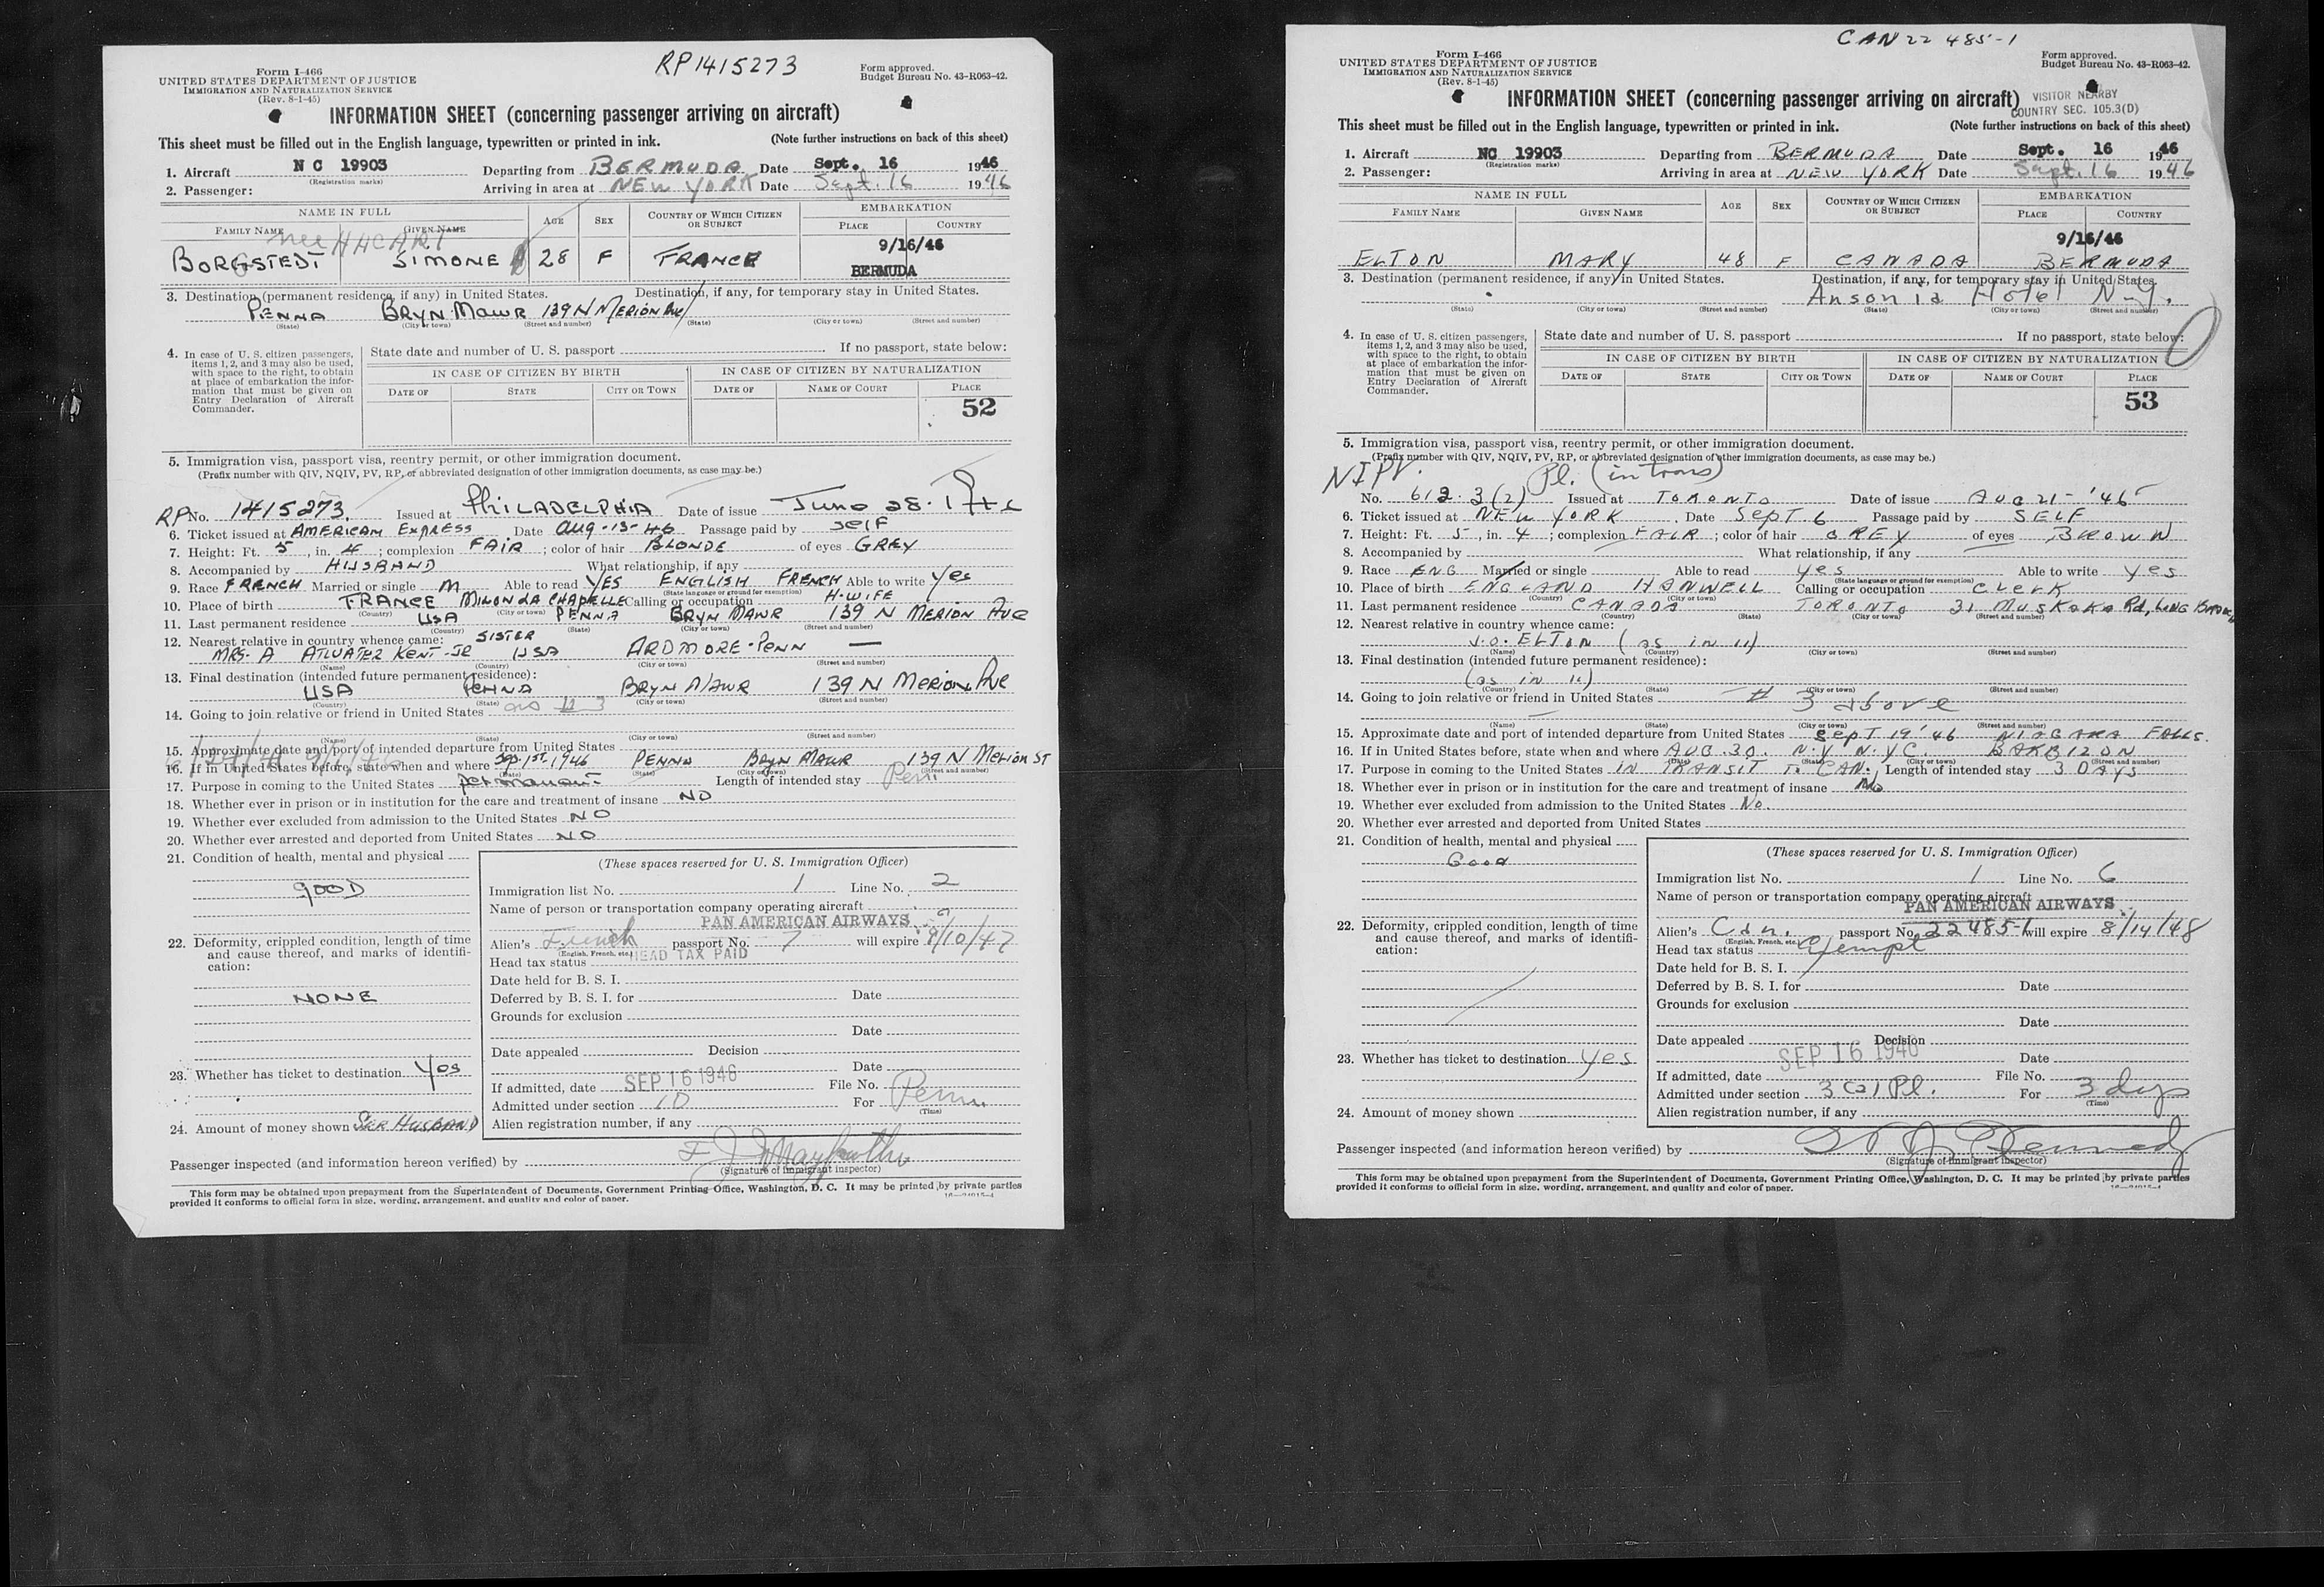 RP1415273
Form I-466
UNITED STATES DEPARTMENT OF JUSTICE
IMMIGRATION AND NATURALIZATION SERVICE
(Rev. 8-1-45)
Form approved.
Budget Bureau No. 43-R063-42.
INFORMATION SHEET (concerning passenger arriving on aircraft)
This sheet must be filled out in the English language, typewritten or printed in ink. (Note further instructions on back of this sheet)
1. Aircraft NC 19903 Departing from BERMUDA Date Sept. 16 1946
(Registration marks)
2. Passenger: Arriving in area at NEW YORK Date Sept. 16 1946
NAME IN FULL AGE SEX COUNTRY OF WHICH CITIZEN OR SUBJECT EMBARKATION
FAMILY NAME GIVEN NAME PLACE COUNTRY
nee
9/16/46
BORGSTEDT SIMONE 28 F FRANCE BERMUDA
3. Destination (permanent residence, if any) in United States. Destination, if any, for temporary stay in United States.
PENNA BRYN MAWR 139 N MERION AVE
(State) (City or town) (Street and number) (State) (City or town) (Street and number)
4. In case of U. S. citizen passengers, items 1, 2, and 3 may also be used, with space to the right, to obtain at place of embarkation the information that must be given on Entry Declaration of Aircraft Commander.
State date and number of U. S. passport If no passport, state below:
IN CASE OF CITIZEN BY BIRTH IN CASE OF CITIZEN BY NATURALIZATION
DATE OF STATE CITY OR TOWN DATE OF NAME OF COURT PLACE
52
5. Immigration visa, passport visa, reentry permit, or other immigration document.
(Prefix number with QIV, NQIV, PV, RP, or abbreviated designation of other immigration documents, as case may be.)
RP No. 1415273. Issued at PHILADELPHIA Date of issue June 28.
6. Ticket issued at AMERICAN EXPRESS Date Aug-13-46 Passage paid by SELF
7. Height: Ft. 5, in. 4; complexion FAIR; color of hair BLONDE of eyes GREY
8. Accompanied by HUSBAND What relationship, if any
9. Race FRENCH Married or single M Able to read YES ENGLISH FRENCH Able to write Yes
(State language or ground for exemption)
10. Place of birth FRANCE CHAPELLE Calling or occupation H-WIFE
(Country) (City or town)
11. Last permanent residence USA PENNA BRYN MAWR 139 N MERION AVE
(Country) (State) (City or town) (Street and number)
12. Nearest relative in country whence came: SISTER
MRS. A ATWATER KENT-JR USA ARDMORE-PENN —
(Name) (Country) (City or town) (Street and number)
13. Final destination (intended future permanent residence):
USA PENNA BRYN MAWR 139 N MERION AVE
(Country) (State) (City or town) (Street and number)
14. Going to join relative or friend in United States as # 3
(Name) (State) (City or town) (Street and number)
15. Approximate date and port of intended departure from United States
16. If in United States before, state when and where Sep. 1st, 1946 PENNA BRYN MAWR 139 N MERION ST
(Date) (State) (City or town) (Street and number)
17. Purpose in coming to the United States permanent Length of intended stay Perm
18. Whether ever in prison or in institution for the care and treatment of insane NO
19. Whether ever excluded from admission to the United States NO
20. Whether ever arrested and deported from United States NO
21. Condition of health, mental and physical
GOOD
22. Deformity, crippled condition, length of time and cause thereof, and marks of identification:
NONE
23. Whether has ticket to destination Yes
24. Amount of money shown HUSBAND
(These spaces reserved for U. S. Immigration Officer)
Immigration list No. 1 Line No. 2
Name of person or transportation company operating aircraft
PAN AMERICAN AIRWAYS
Alien's French passport No. 7 will expire 9/10/47
(English, French, etc.)
Head tax status HEAD TAX PAID
Date held for B. S. I.
Deferred by B. S. I. for Date
Grounds for exclusion
Date
Date appealed Decision
Date
If admitted, date SEP 16 1946 File No.
Admitted under section 10 For Perm
(Time)
Alien registration number, if any
Passenger inspected (and information hereon verified) by
(Signature of immigrant inspector)
This form may be obtained upon prepayment from the Superintendent of Documents, Government Printing Office, Washington, D. C. It may be printed by private parties
provided it conforms to official form in size, wording, arrangement, and quality and color of paper.
CAN 22 485-1
Form I-466
UNITED STATES DEPARTMENT OF JUSTICE
IMMIGRATION AND NATURALIZATION SERVICE
(Rev. 8-1-45)
Form approved.
Budget Bureau No. 43-R063-42.
INFORMATION SHEET (concerning passenger arriving on aircraft)
VISITOR NEARBY
COUNTRY SEC. 105.3(D)
This sheet must be filled out in the English language, typewritten or printed in ink. (Note further instructions on back of this sheet)
1. Aircraft NC 19903 Departing from BERMUDA Date Sept. 16 1946
(Registration marks)
2. Passenger: Arriving in area at NEW YORK Date Sept. 16 1946
NAME IN FULL AGE SEX COUNTRY OF WHICH CITIZEN OR SUBJECT EMBARKATION
FAMILY NAME GIVEN NAME PLACE COUNTRY
9/16/46
ELTON MARY 48 F CANADA BERMUDA
3. Destination (permanent residence, if any) in United States. Destination, if any, for temporary stay in United States.
Ansonia Hotel N.Y.
(State) (City or town) (Street and number) (State) (City or town) (Street and number)
4. In case of U. S. citizen passengers, items 1, 2, and 3 may also be used, with space to the right, to obtain at place of embarkation the information that must be given on Entry Declaration of Aircraft Commander.
State date and number of U. S. passport If no passport, state below:
IN CASE OF CITIZEN BY BIRTH IN CASE OF CITIZEN BY NATURALIZATION
DATE OF STATE CITY OR TOWN DATE OF NAME OF COURT PLACE
53
5. Immigration visa, passport visa, reentry permit, or other immigration document.
(Prefix number with QIV, NQIV, PV, RP, or abbreviated designation of other immigration documents, as case may be.)
NIPV. Pl. (in trans)
No. 612.3(2) Issued at TORONTO Date of issue AUG 21-
6. Ticket issued at NEW YORK. Date SEPT. 6 Passage paid by SELF
7. Height: Ft. 5, in. 4; complexion FAIR; color of hair GREY of eyes BROWN
8. Accompanied by What relationship, if any
9. Race ENG Married or single Able to read yes Able to write yes
(State language or ground for exemption)
10. Place of birth ENGLAND HANWELL Calling or occupation CLERK
(Country) (City or town)
11. Last permanent residence CANADA TORONTO 31 MUSKOKA Rd, LONG BRANCH
(Country) (State) (City or town) (Street and number)
12. Nearest relative in country whence came:
J.O. ELTON (as in 11)
(Name) (Country) (City or town) (Street and number)
13. Final destination (intended future permanent residence):
(as in 11)
(Country) (State) (City or town) (Street and number)
14. Going to join relative or friend in United States # 3 above
(Name) (State) (City or town) (Street and number)
15. Approximate date and port of intended departure from United States SEPT 19 '46 NIAGARA FALLS.
16. If in United States before, state when and where AUG.30. N.Y. N.Y.C. BARBIZON
(Date) (State) (City or town) (Street and number)
17. Purpose in coming to the United States IN TRANSIT TO CAN. Length of intended stay 3 DAYS
18. Whether ever in prison or in institution for the care and treatment of insane No
19. Whether ever excluded from admission to the United States No.
20. Whether ever arrested and deported from United States
21. Condition of health, mental and physical
Good
22. Deformity, crippled condition, length of time and cause thereof, and marks of identification:
23. Whether has ticket to destination yes
24. Amount of money shown
(These spaces reserved for U. S. Immigration Officer)
Immigration list No. 1 Line No. 6
Name of person or transportation company operating aircraft
PAN AMERICAN AIRWAYS
Alien's Cdn. passport No. 22485-1 will expire 8/14/48
(English, French, etc.)
Head tax status Exempt
Date held for B. S. I.
Deferred by B. S. I. for Date
Grounds for exclusion
Date
Date appealed Decision
SEP 16 1946 Date
If admitted, date File No.
Admitted under section 3(2) Pl. For 3 dys
(Time)
Alien registration number, if any
Passenger inspected (and information hereon verified) by
(Signature of immigrant inspector)
This form may be obtained upon prepayment from the Superintendent of Documents, Government Printing Office, Washington, D. C. It may be printed by private parties
provided it conforms to official form in size, wording, arrangement, and quality and color of paper.